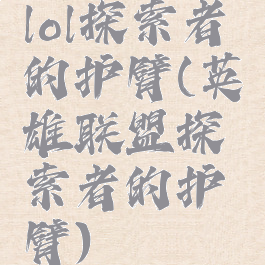 lol探索者
的护臂(英
雄联盟探
索者的护
臂)